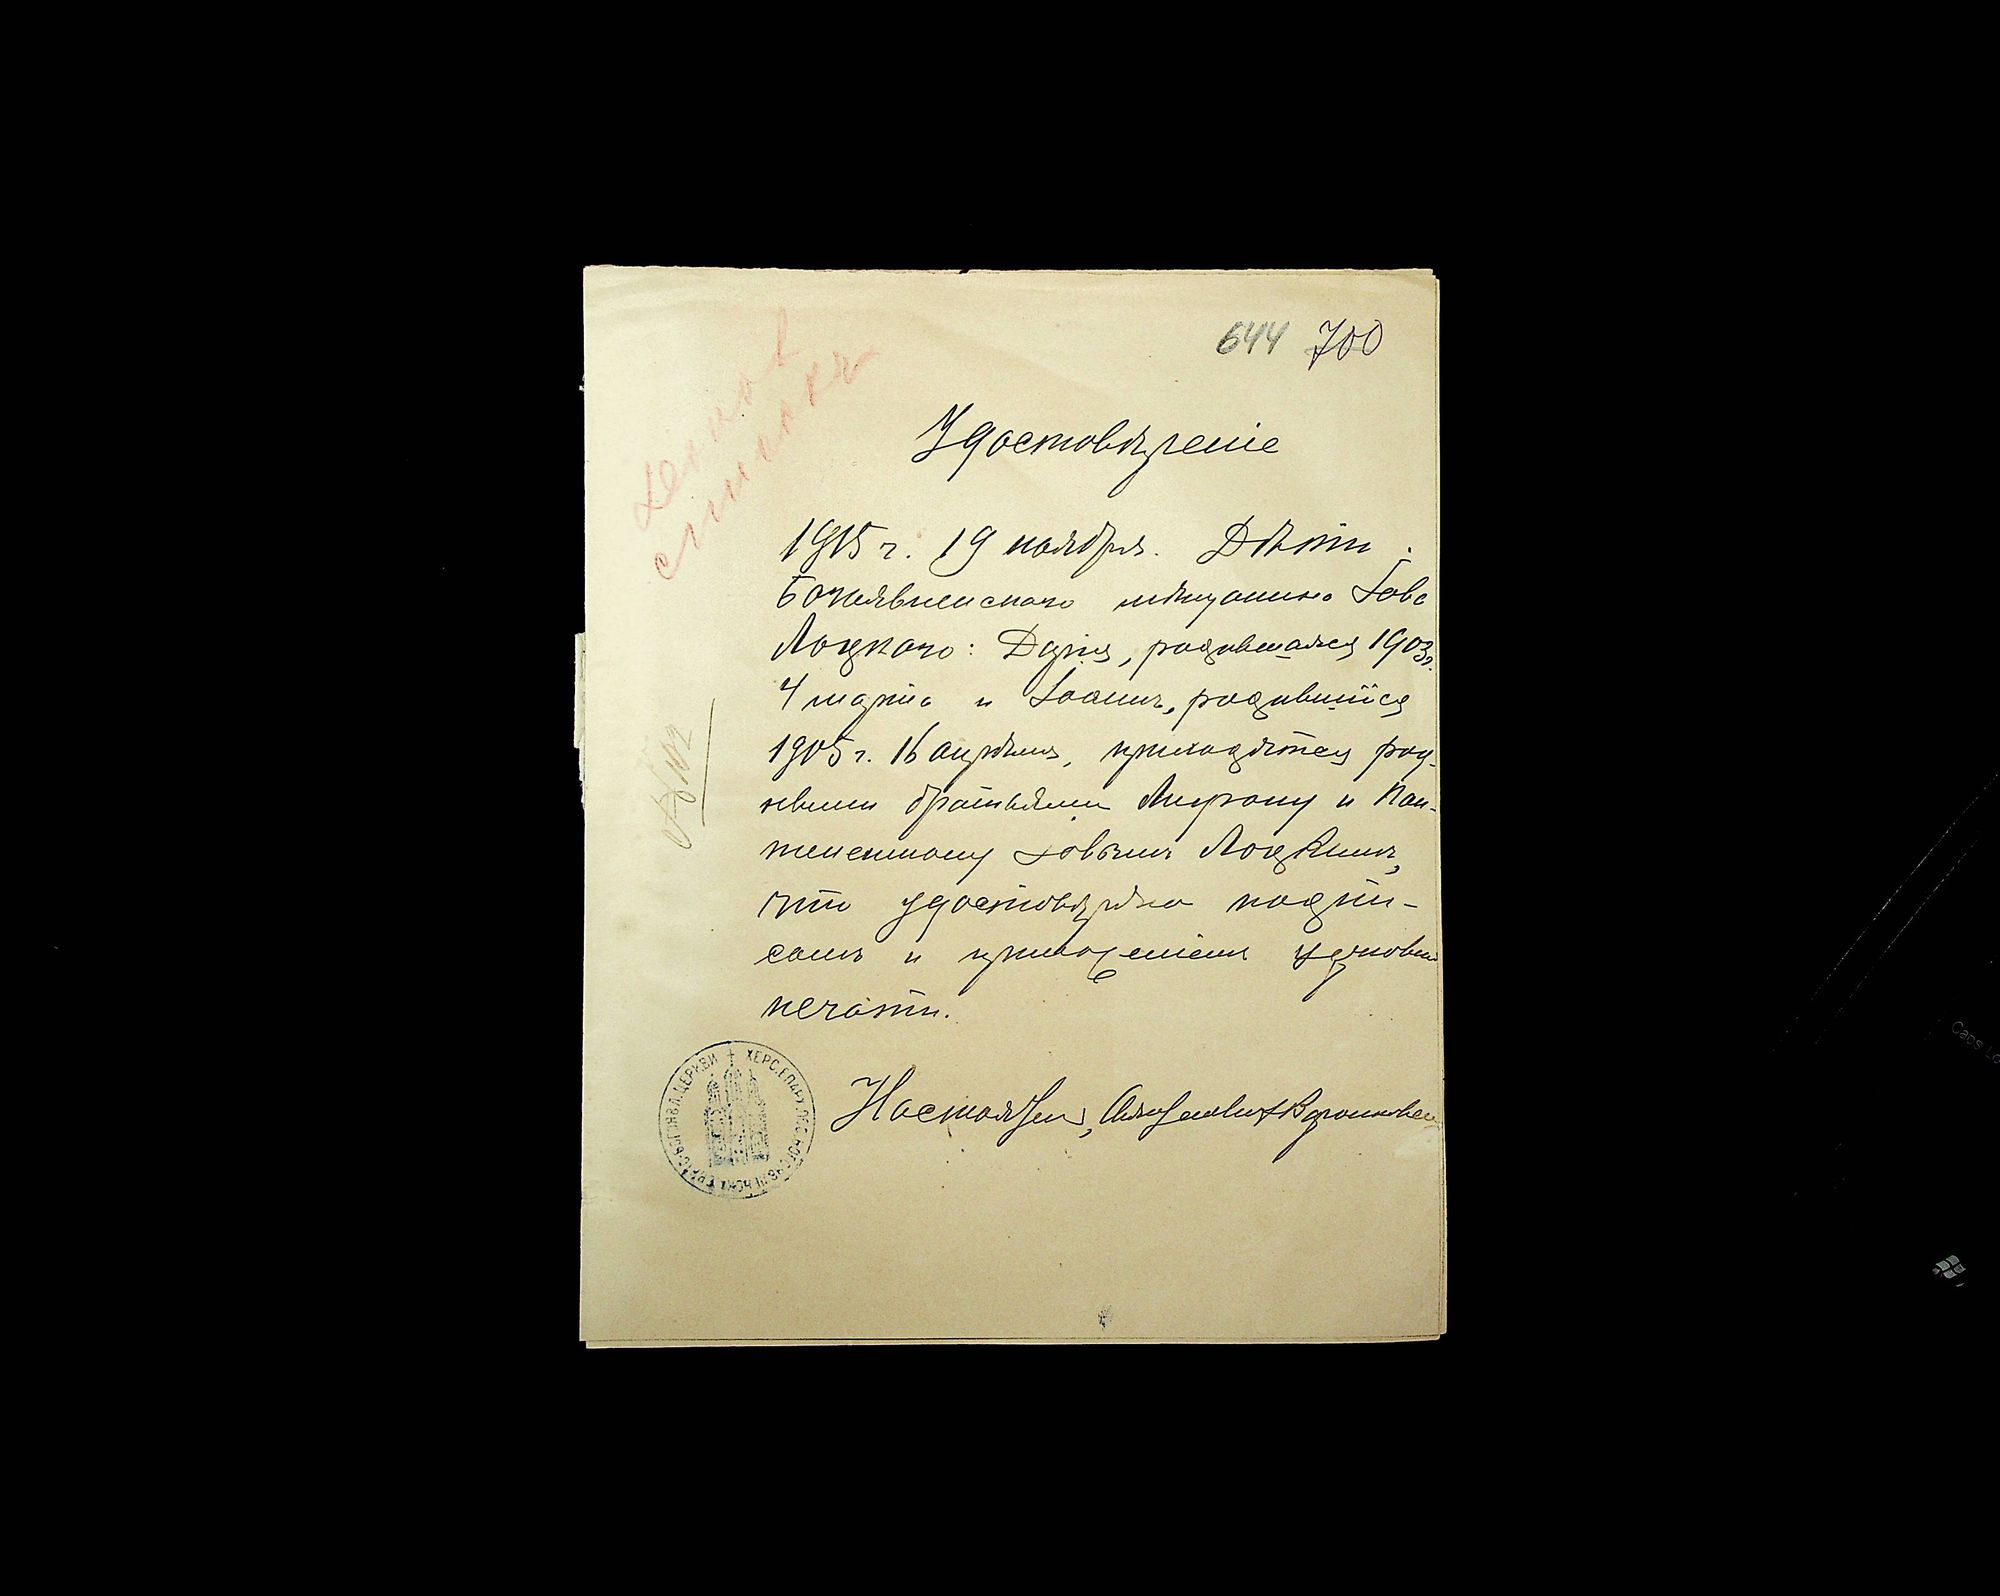 644 700
Удостовѣреніе
1915 г. 19 ноября. Дѣти
Богоявленскаго мѣщанина Іова
Лоцкаго: Дарія, родившаяся 1903 г.
4 марта и Іоаннъ, родившійся
1905 г. 16 апрѣля, приходятся род-
ными братьями Мирону и Пан-
телеимону Іовымъ Лоцкимъ,
что удостовѣряю подпи-
сомъ и приложеніемъ церковной
печати.
Настоятель,
ХЕРС. ЕПАРХ. ЦЕРКВИ